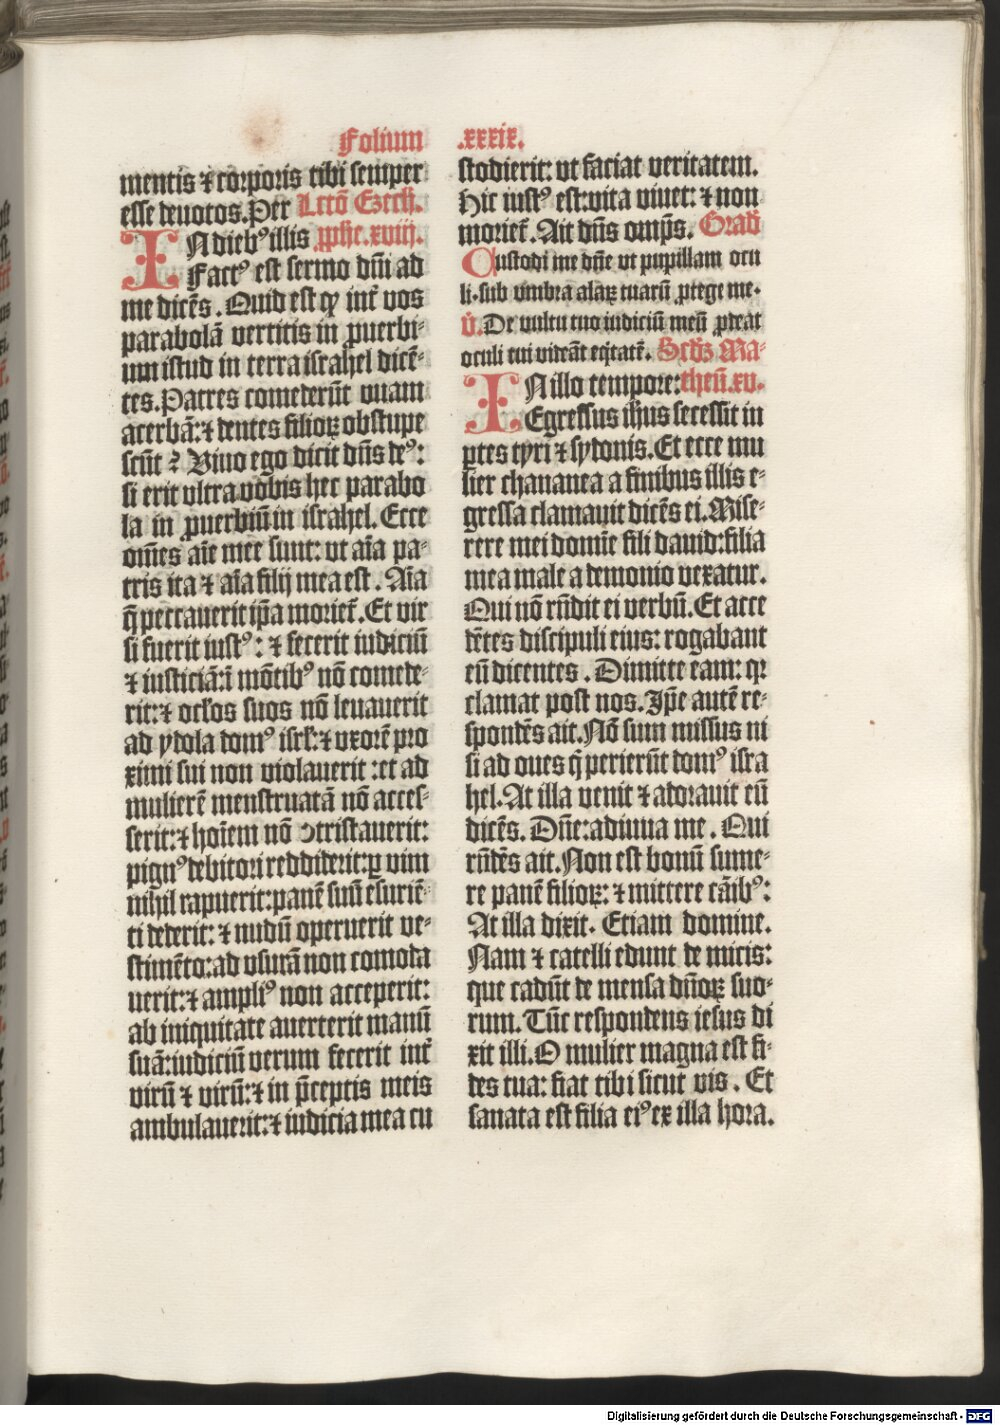 Folium .xxxix.
mentis ⁊ corporis tibi semper
esse deuotos. Per Lctõ Ezech.
INdiebꝰ illis ꝓphe.xviij.
Factꝰ est sermo dñi ad
me dicẽs. Quid est ꝙ int̃ vos
parabolã vertitis in ꝓuerbi-
um istud in terra israhel dicẽ-
tes. Patres comederũt vuam
acerbã: ⁊ dentes filioꝝ obstupe
scũt? Viuo ego dicit dñs deꝰ:
si erit vltra vobis hec parabo
la in ꝓuerbiũ in israhel. Ecce
om̃es aĩe mee sunt: vt aĩa pa-
tris ita ⁊ aĩa filij mea est. Aĩa
q̃ peccauerit ip̃a moriet̃. Et vir
si fuerit iustꝰ: ⁊ fecerit iudiciũ
⁊ iusticiã: ĩ mõtibꝰ nõ comede-
rit: ⁊ oc̃los suos nõ leuauerit
ad ydola domꝰ isrl̃: ⁊ vxorẽ pro
ximi sui non violauerit: et ad
mulierẽ menstruatã nõ acces-
serit: ⁊ hoĩem nõ ꝯtristauerit:
pignꝰ debitori reddiderit: ꝑ vim
nihil rapuerit: panẽ suũ esuriẽ-
ti dederit: ⁊ nudũ operuerit ve-
stimẽto: ad vsurã non comoda
uerit: ⁊ ampliꝰ non acceperit:
ab iniquitate auerterit manũ
suã: iudiciũ verum fecerit int̃
virũ ⁊ virũ: ⁊ in p̃ceptis meis
ambulauerit: ⁊ iudicia mea cu
stodierit: vt faciat veritatem.
Hic iustꝰ est: vita viuet: ⁊ non
moriet̃. Ait dñs omp̃s. Grad̃
Custodi me dñe vt pupillam ocu
li. sub vmbra alaꝝ tuarũ ꝓtege me.
v̉. De vultu tuo iudiciũ meũ ꝓdeat
oculi tui videãt eq̇tatẽ. Scd̃ꝫ Ma-
INillo tempore: theũ.xv.
Egressus ihũs secessit in
ꝑtes tyri ⁊ sydonis. Et ecce mu
lier chananea a finibus illis e-
gressa clamauit dicẽs ei. Mise-
rere mei domĩe fili dauid: filia
mea male a demonio vexatur.
Qui nõ rñdit ei verbũ. Et acce
dẽtes discipuli eius: rogabant
eũ dicentes. Dimitte eam: qꝛ
clamat post nos. Ip̃e autẽ re-
spondẽs ait. Nõ sum missus ni
si ad oues q̃ perierũt domꝰ isra
hel. At illa venit ⁊ adorauit eũ
dicẽs. Dñe: adiuua me. Qui
rñdẽs ait. Non est bonũ sume-
re panẽ filioꝝ: ⁊ mittere cãibꝰ:
At illa dixit. Etiam domine.
Nam ⁊ catelli edunt de micis:
que cadũt de mensa dñoꝝ suo-
rum. Tũc respondens iesus di
xit illi. O mulier magna est fi-
des tua: fiat tibi sicut vis. Et
sanata est filia eiꝰ ex illa hora.
Digitalisierung gefördert durch die Deutsche Forschungsgemeinschaft - DFG